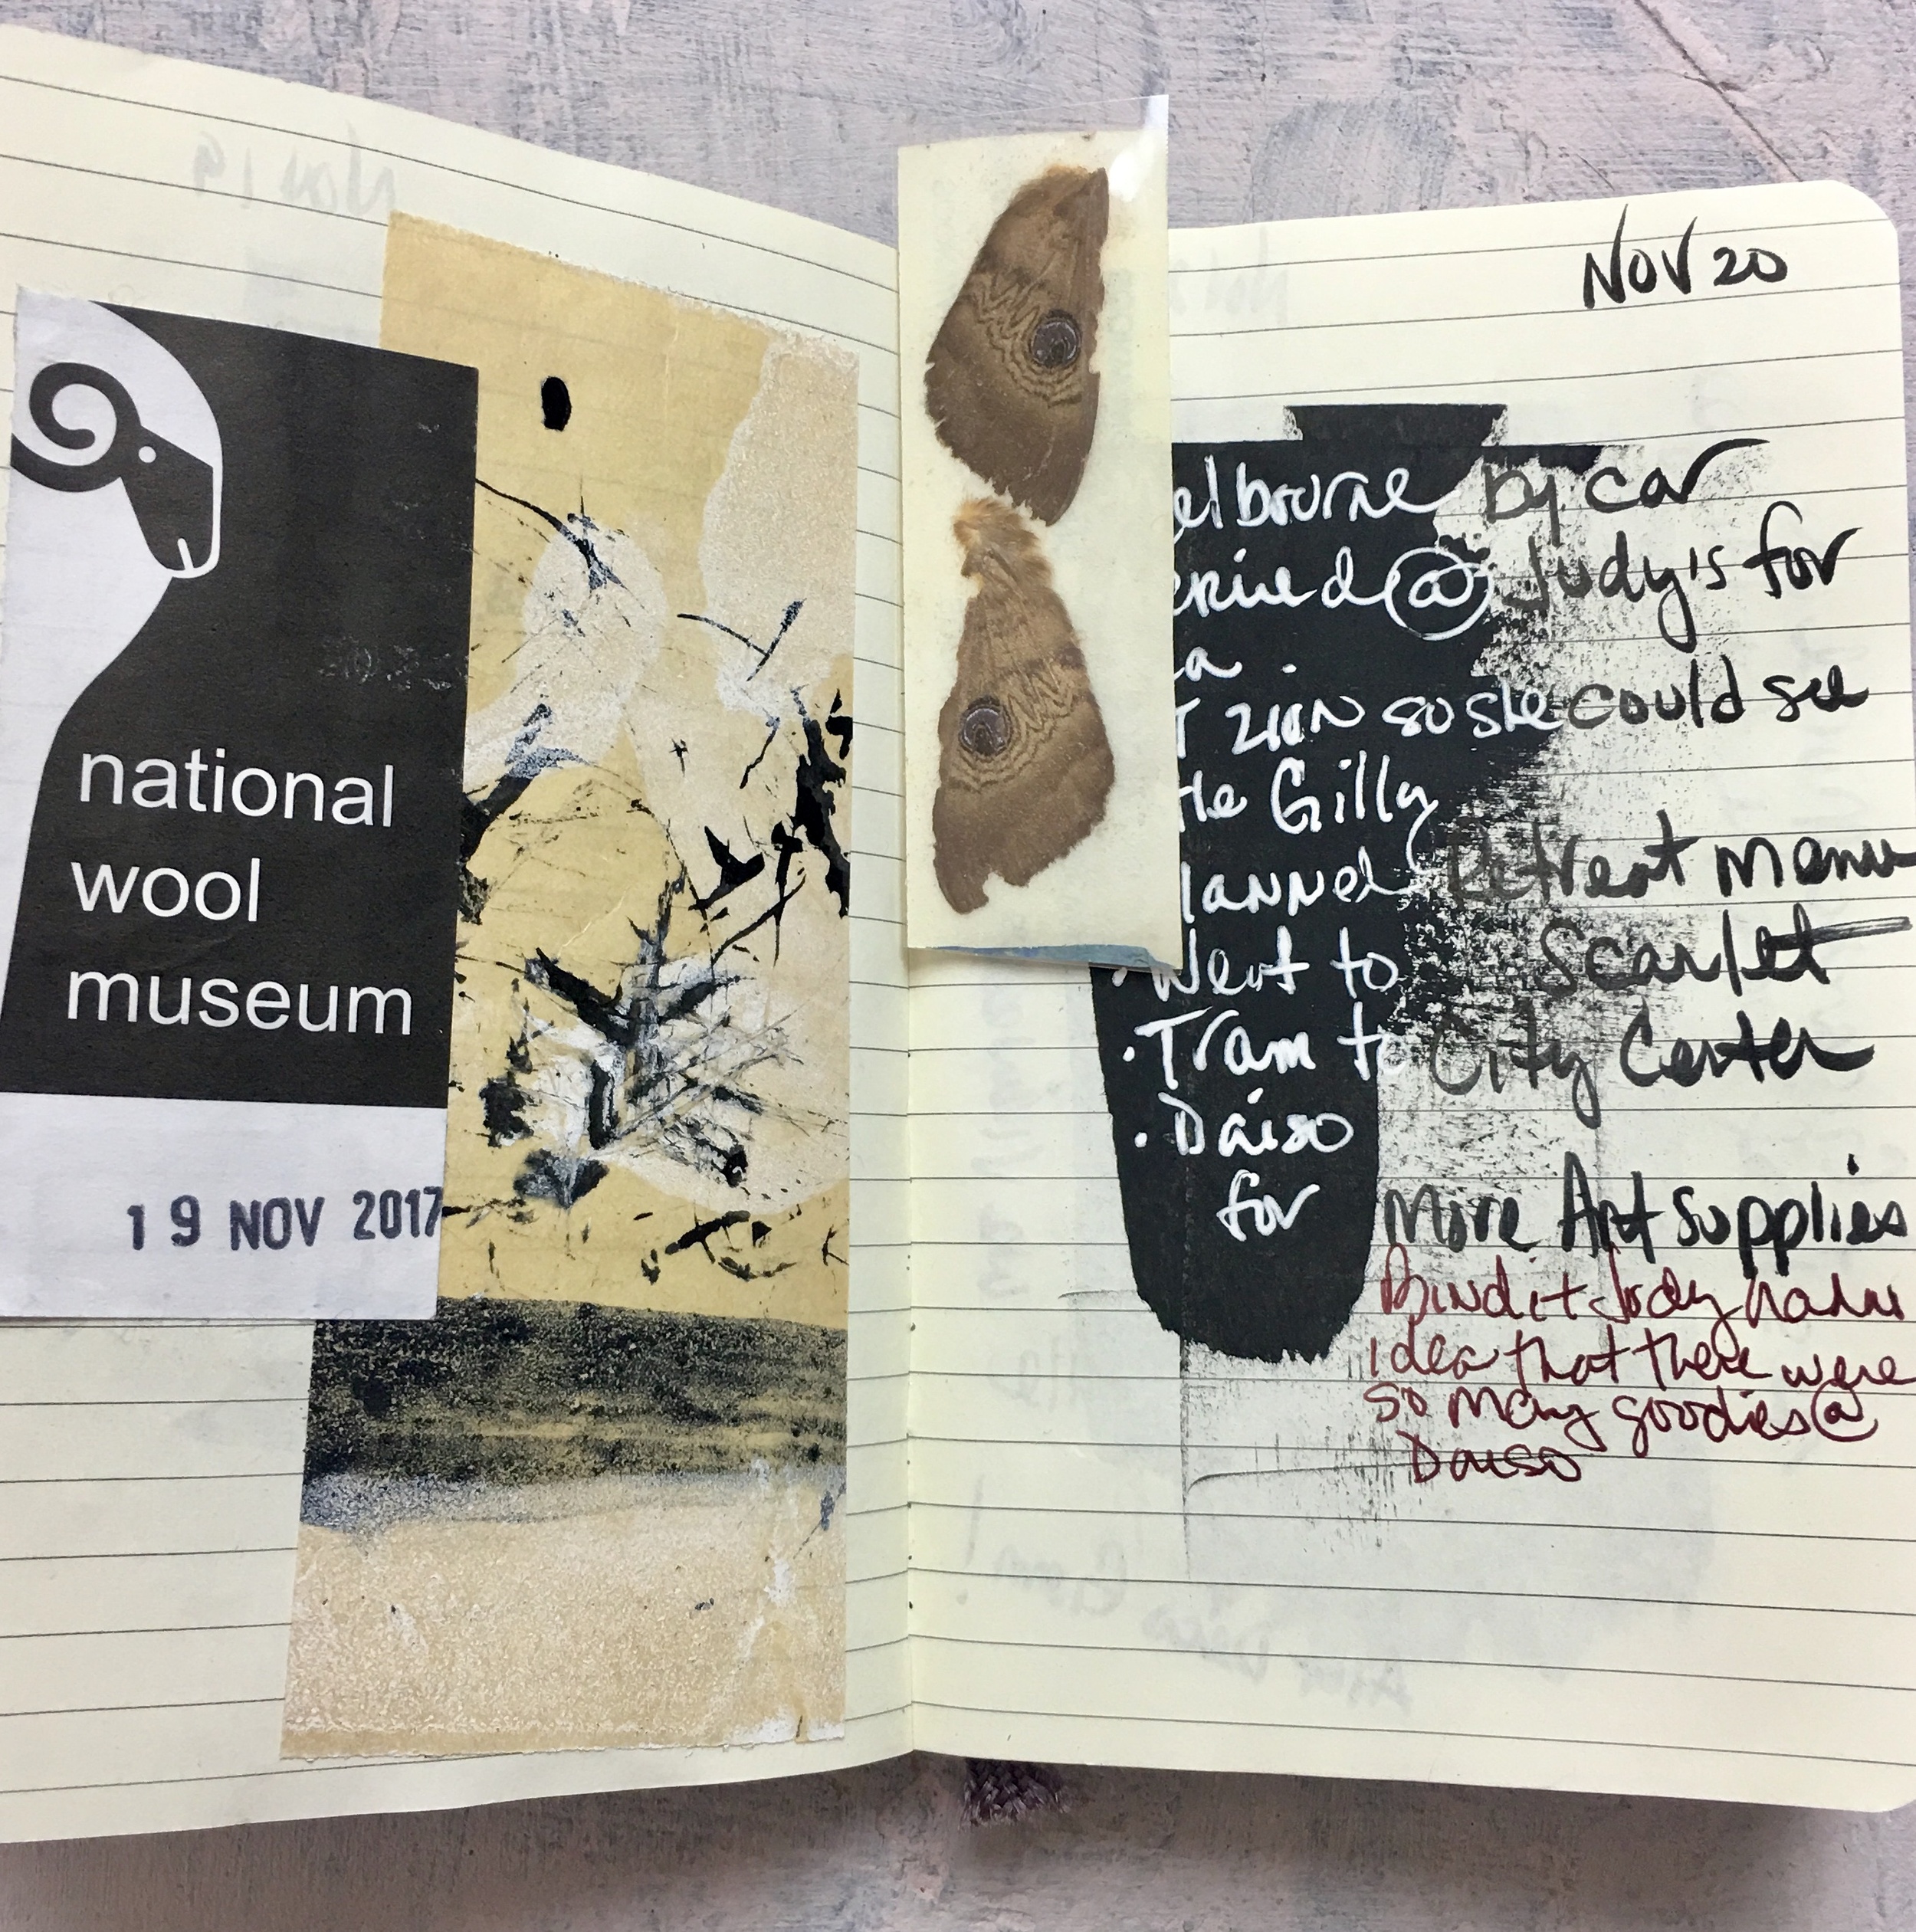 Nov 19
national
wool
museum
19 NOV 2017
NOV 20
elbourne by car
rrived @ Judy's for
a.
T zion so she could see
tle Gilly
lanned Retreat menu
• Went to Scarlet
• Tram to City Center
• Daiso
for More Art supplies
Judy had no
idea that there were
so many goodies @
Daiso